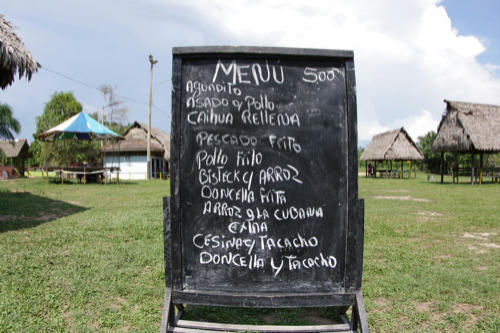 MENÚ 500
AGUADITO
ASADO y Pollo
CAIHUA RELLENA
PESCADO FRITO
Pollo FRito
BisTeck y ARROZ
DONCELLA FRiTA
ARROZ a LA CUBANA
EXTRA
CESINA y TACACHO
DONCELLA y TACACHO